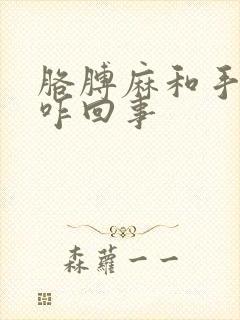 胳膊麻和手
咋回事
森蘿一一